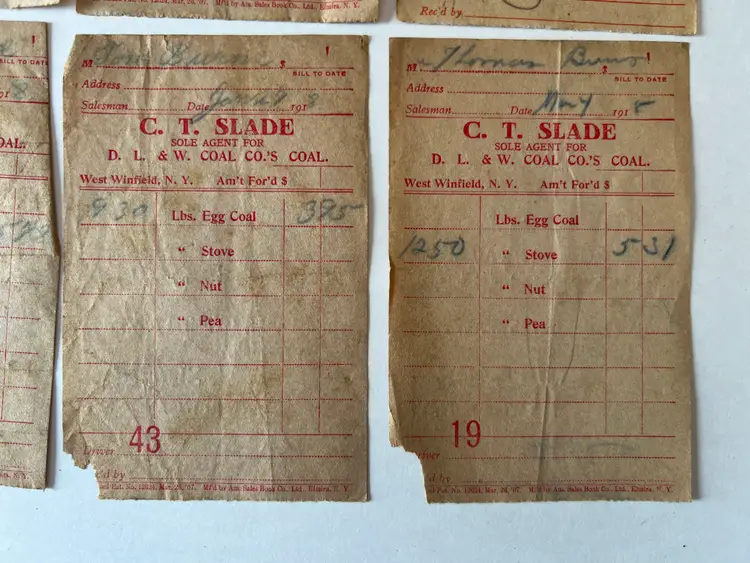 Mar. 26, '07. M'f'd by Am. Sales Book Co., Ltd., Elmira, N. Y.
Rec'd by
BILL TO DATE
8
AL.
COAL.
M $ !
BILL TO DATE
Address
Salesman Date 1918
C. T. SLADE
SOLE AGENT FOR
D. L. & W. COAL CO.'S COAL.
West Winfield, N. Y. Am't For'd $
930 Lbs. Egg Coal 395
" Stove
" Nut
" Pea
43
Driver
c'd by
Pat. No. 12034, Mar. 26, '07. M'f'd by Am. Sales Book Co., Ltd., Elmira, N. Y.
M Thomas Burns $ !
BILL TO DATE
Address
Salesman Date May 1918
C. T. SLADE
SOLE AGENT FOR
D. L. & W. COAL CO.'S COAL.
West Winfield, N. Y. Am't For'd $
Lbs. Egg Coal
1250 " Stove 5 31
" Nut
" Pea
19
river
c'd by
Pat. No. 12034, Mar. 26, '07. M'f'd by Am. Sales Book Co., Ltd., Elmira, N. Y.